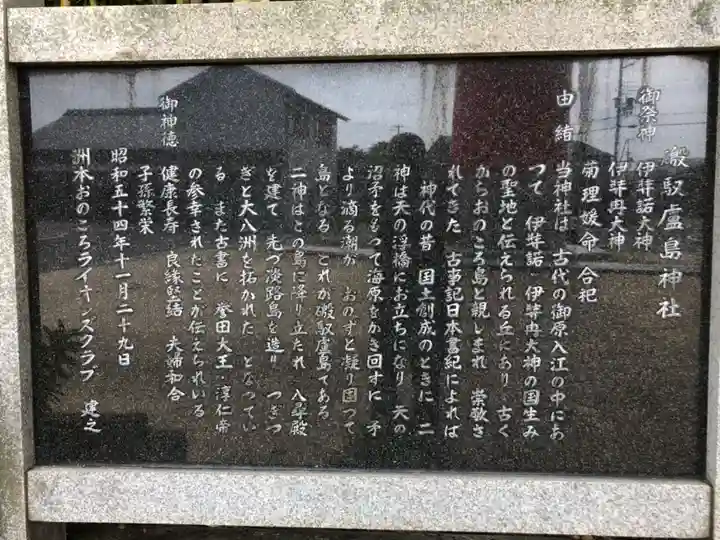 磤馭盧島神社
御祭神 伊弉諾大神
伊弉冉大神
菊理媛命 合祀
由緒 当神社は 古代の御原入江の中にあ
つて 伊弉諾 伊弉冉大神の国生み
の聖地と伝えられる丘にあり 古く
からおのころ島と親しまれ 崇敬さ
れてきた 古事記日本書紀によれば
神代の昔 国土創成のときに 二
神は天の浮橋にお立ちになり 天の
沼矛をもつて海原をかき回すに 矛
より滴る潮が おのずと凝り固つて
島となる これが磤馭盧島である
二神はこの島に降り立たれ 八尋殿
を建て 先づ淡路島を造り つぎつ
ぎと大八洲を拓かれた となつてい
る また古書に 誉田天王・淳仁帝
の参幸されたことが伝えられいる
御神徳 健康長寿 良縁堅結 夫婦和合
子孫繁栄
昭和五十四年十一月二十九日
洲本おのころライオンズクラブ 建之